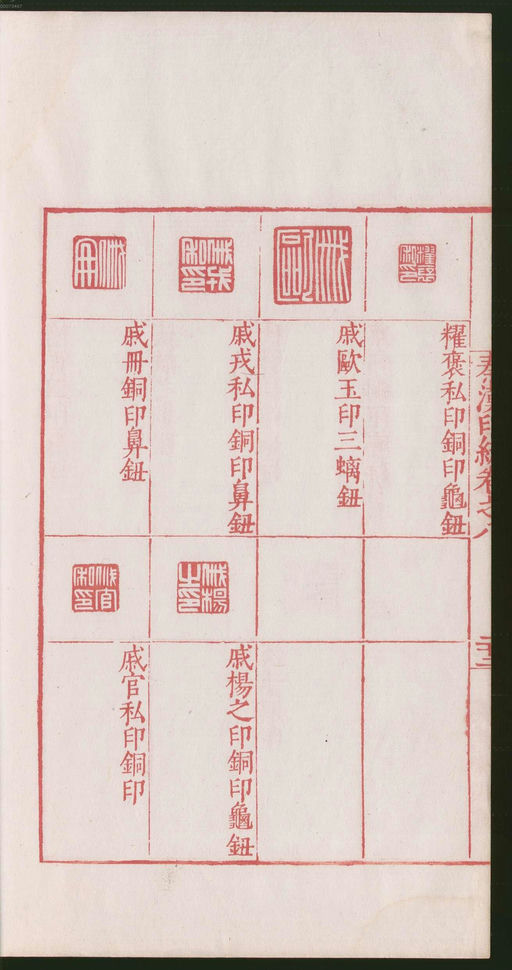 糴褒私印銅印龜鈕
戚歐玉印三螭鈕
戚戎私印銅印鼻鈕
戚楊之印銅印龜鈕
戚冊銅印鼻鈕
戚官私印銅印
00073447